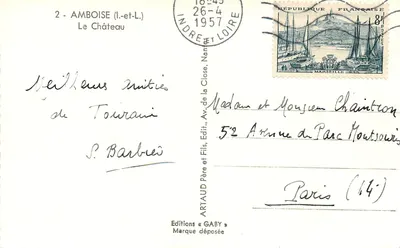 2 - AMBOISE (I.-et-L.)
Le Château
18H45
26-4
1957
INDRE et LOIRE
RÉPUBLIQUE FRANÇAISE
8F
MARSEILLE
Meilleures amitiés
de Touraine
S. Barbier
ARTAUD Père et Fils, Édit., Av. de la Close, Nantes
Madame et Monsieur Chaintron
52 Avenue du Parc Montsouris
Paris (14)
Editions « GABY »
Marque déposée